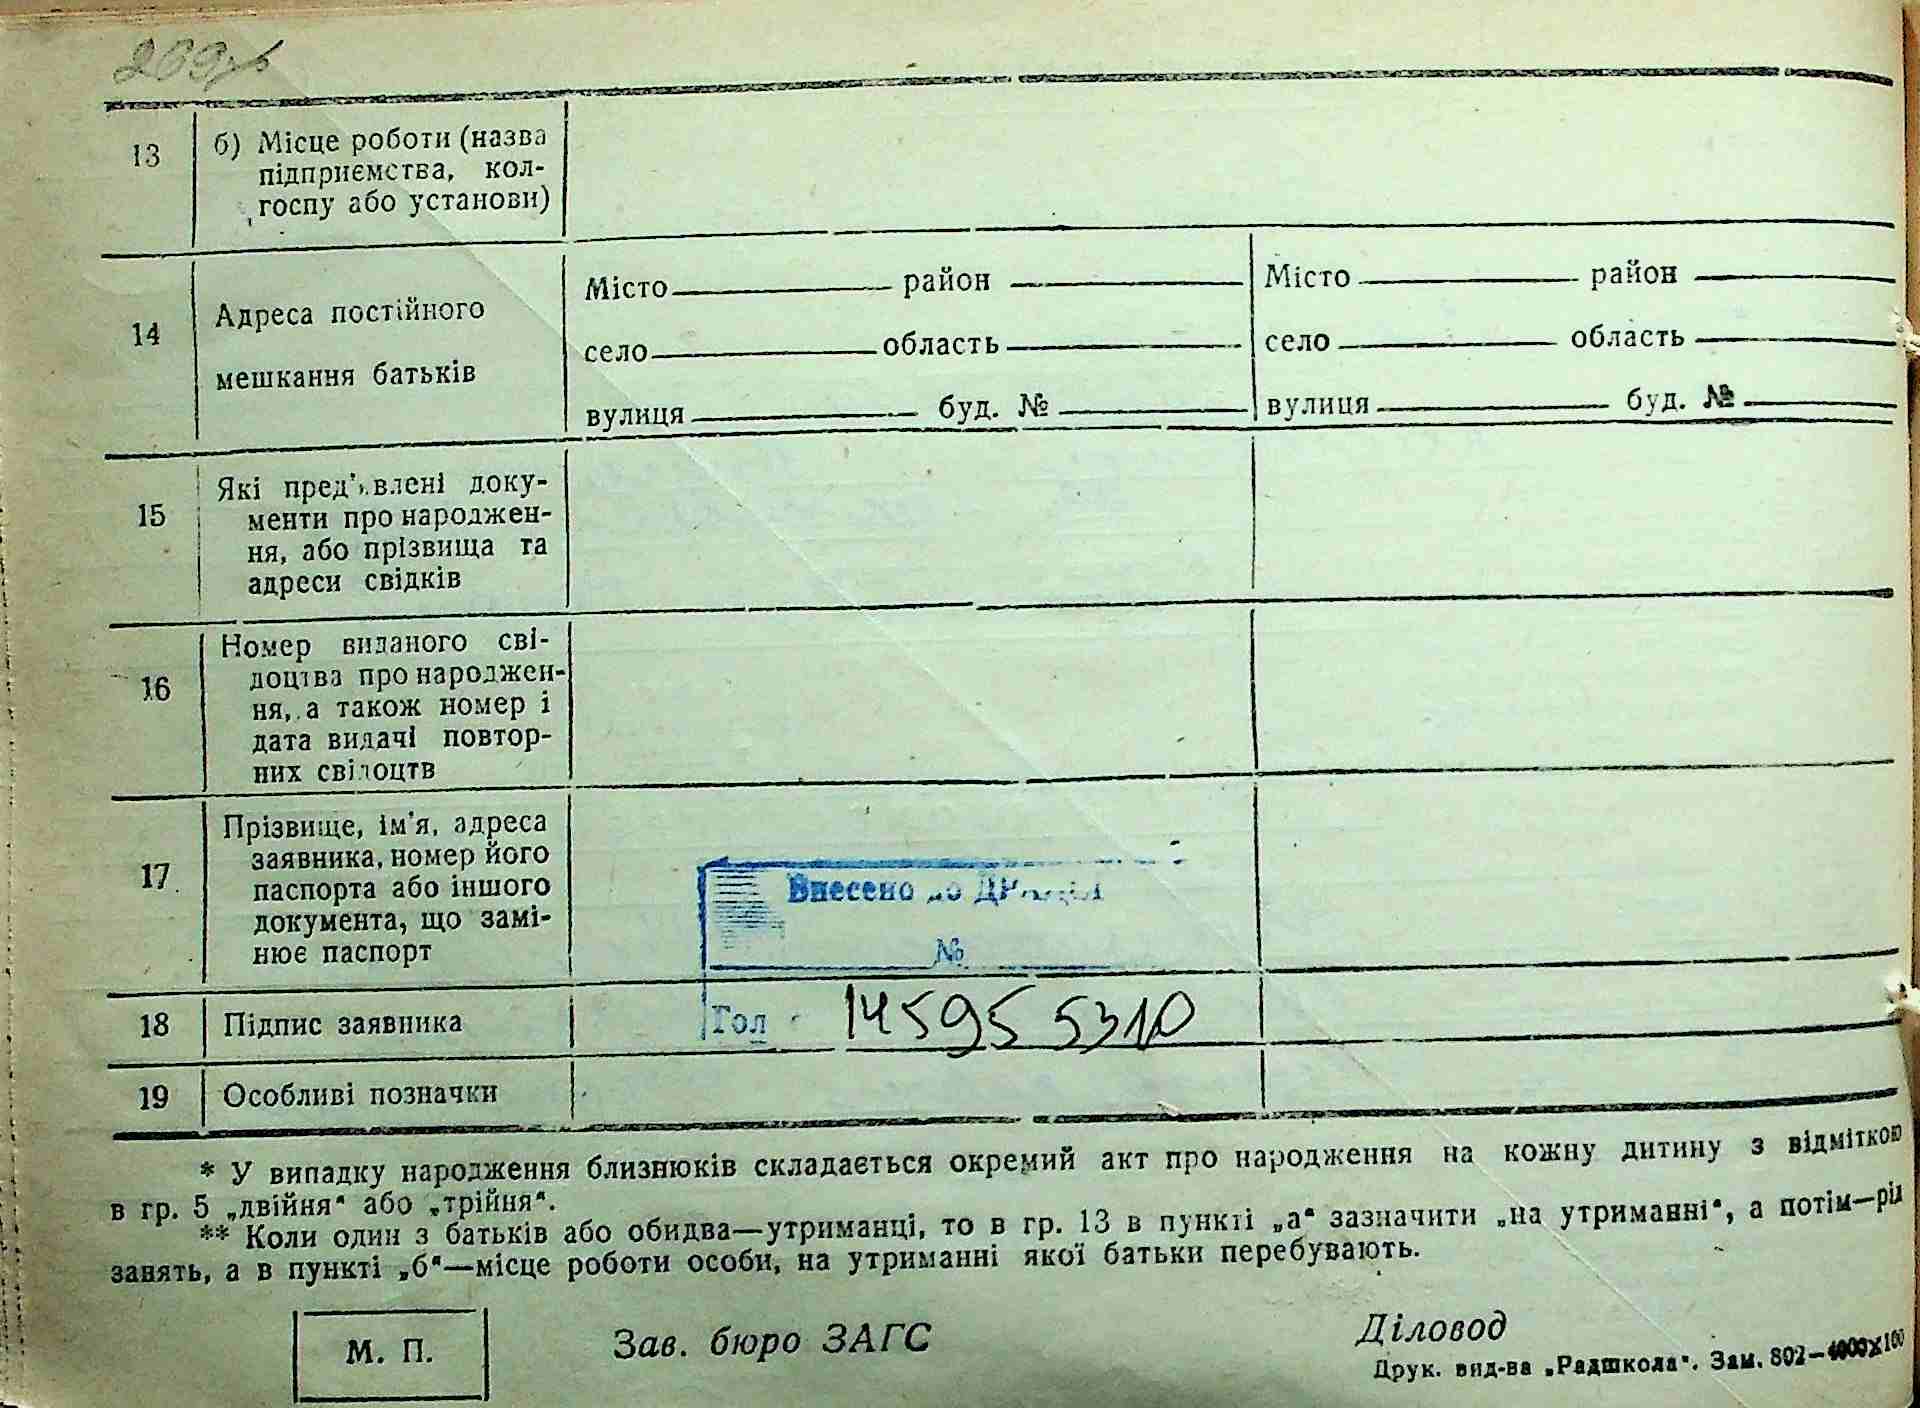 269
13
б) Місце роботи (назва
підприємства, кол-
госпу або установи)
14
Адреса постійного
мешкання батьків
Місто район
село область
вулиця буд. №
Місто район
село область
вулиця буд. №
15
Які пред'явлені доку-
менти про народжен-
ня, або прізвища та
адреси свідків
16
Номер виданого сві-
доцтва про народжен-
ня, а також номер і
дата видачі повтор-
них свідоцтв
17
Прізвище, ім'я, адреса
заявника, номер його
паспорта або іншого
документа, що замі-
нює паспорт
Внесено до
№
18
Підпис заявника
Гол
14595 5310
19
Особливі позначки
* У випадку народження близнюків складається окремий акт про народження на кожну дитину з відміткою
в гр. 5 „двійня“ або „трійня“.
** Коли один з батьків або обидва—утриманці, то в гр. 13 в пункті „а“ зазначити „на утриманні“, а потім—рід
занять, а в пункті „б“—місце роботи особи, на утриманні якої батьки перебувають.
М. П.
Зав. бюро ЗАГС
Діловод
Друк. вид-ва „Радшкола“. Зам. 802—4000х100